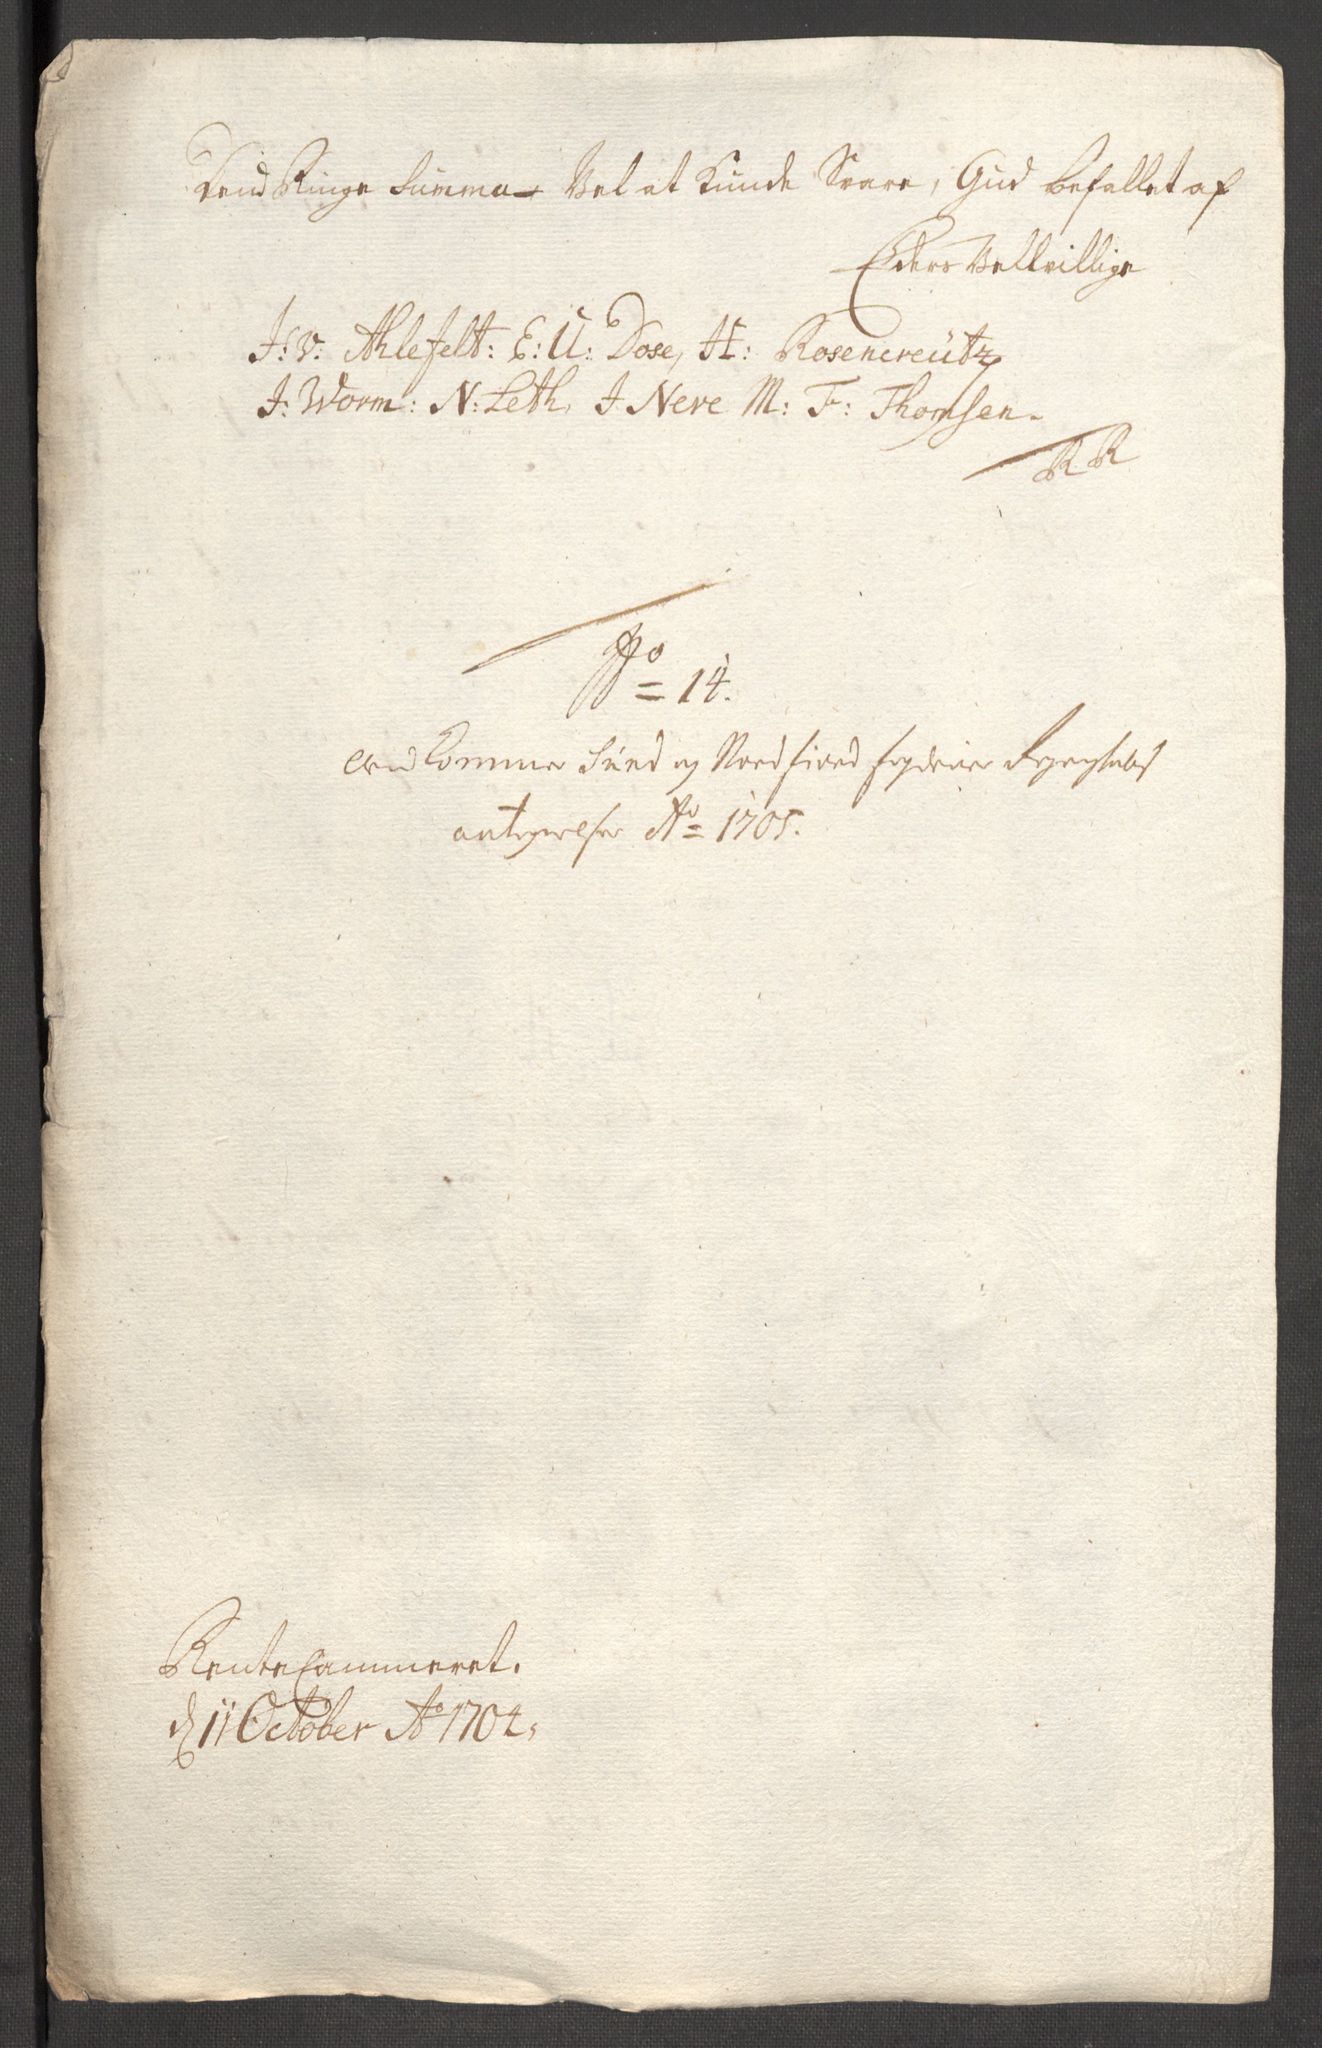 dend Ringe Summa, Vel at kunde Svare, Gud befallet af
Eders Velvillige
J: v: Ahlefelt: E: U: Dose, H: Rosencreütz
J: Worm: N: Leth, J Neve M: F: Thomsen.
R R
No 14.
Sund og Nordfiord fogderier Regenskabs
antegnelser Ao 1705.
RenteCammeret.
d 11 October Ao 1704,